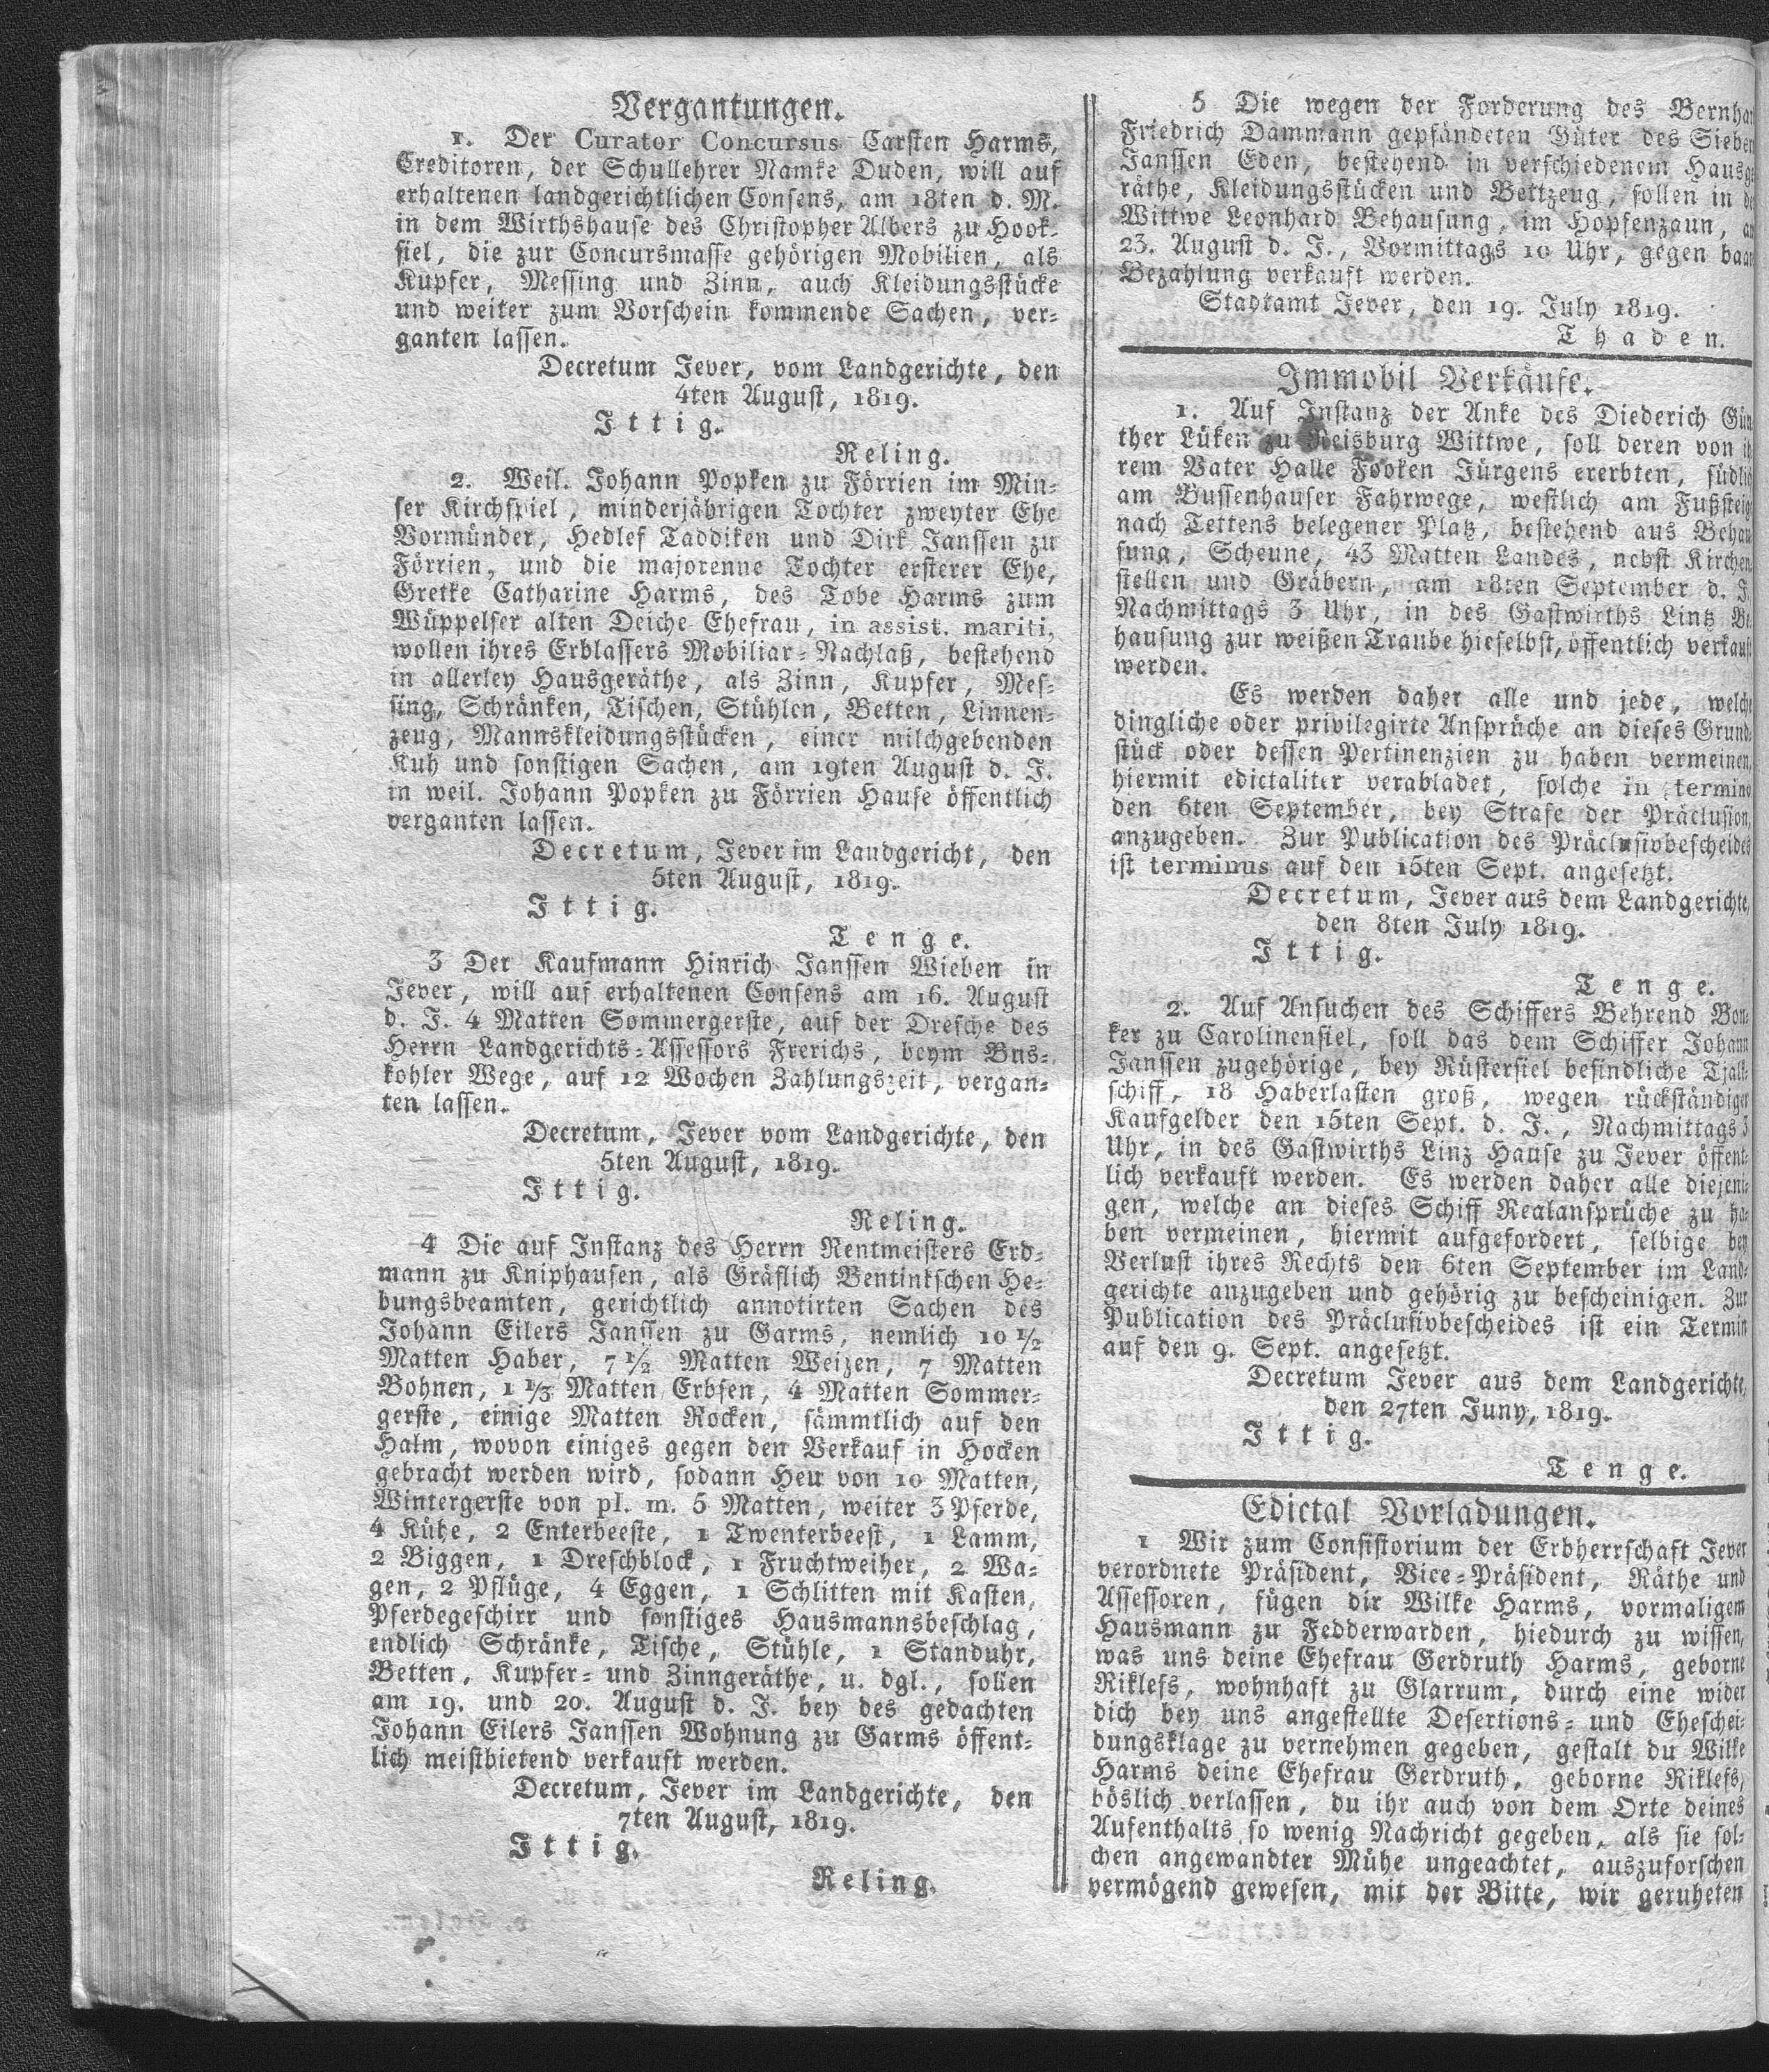 Vergantungen.
1. Der Curator Concursus Carsten Harms,
Creditoren, der Schullehrer Namke Duden, will auf
erhaltenen landgerichtlichen Consens, am 18ten d. M.
in dem Wirthshause des Christopher Albers zu Hook-
siel, die zur Concursmasse gehörigen Mobilien, als
Kupfer, Messing und Zinn, auch Kleidungsstücke
und weiter zum Vorschein kommende Sachen, ver-
ganten lassen.
Decretum Jever, vom Landgerichte, den
4ten August, 1819.
Ittig.
Reling.
2. Weil. Johann Popken zu Förrien im Min-
ser Kirchspiel, minderjährigen Tochter zweyter Ehe
Vormünder, Hedlef Taddiken und Dirk Janssen zu
Förrien, und die majorenne Tochter ersterer Ehe,
Gretke Catharine Harms, des Tobe Harms zum
Wüppelser alten Deiche Ehefrau, in assist. mariti,
wollen ihres Erblassers Mobiliar-Nachlaß, bestehend
in allerley Hausgeräthe, als Zinn, Kupfer, Mes-
sing, Schränken, Tischen, Stühlen, Betten, Linnen-
zeug, Mannskleidungsstücken, einer milchgebenden
Kuh und sonstigen Sachen, am 19ten August d. J.
in weil. Johann Popken zu Förrien Hause öffentlich
verganten lassen.
Decretum, Jever im Landgericht, den
5ten August, 1819.
Ittig.
Tenge.
3 Der Kaufmann Hinrich Janssen Wieben in
Jever, will auf erhaltenen Consens am 16. August
d. J. 4 Matten Sommergerste, auf der Dresche des
Herrn Landgerichts-Assessors Frerichs, beym Bus-
kohler Wege, auf 12 Wochen Zahlungszeit, vergan-
ten lassen.
Decretum, Jever vom Landgerichte, den
5ten August, 1819.
Ittig.
Reling.
4 Die auf Instanz des Herrn Rentmeisters Erd-
mann zu Kniphausen, als Gräflich Bentinkschen He-
bungsbeamten, gerichtlich annotirten Sachen des
Johann Eilers Janssen zu Garms, nemlich 10 1/2
Matten Haber, 7 1/2 Matten Weizen, 7 Matten
Bohnen, 1 1/3 Matten Erbsen, 4 Matten Sommer-
gerste, einige Matten Rocken, sämmtlich auf den
Halm, wovon einiges gegen den Verkauf in Hocken
gebracht werden wird, sodann Heu von 10 Matten,
Wintergerste von pl. m. 5 Matten, weiter 3 Pferde,
4 Kühe, 2 Enterbeeste, 1 Twenterbeest, 1 Lamm,
2 Biggen, 1 Dreschblock, 1 Fruchtweiher, 2 Wa-
gen, 2 Pflüge, 4 Eggen, 1 Schlitten mit Kasten,
Pferdegeschirr und sonstiges Hausmannsbeschlag,
endlich Schränke, Tische, Stühle, 1 Standuhr,
Betten, Kupfer- und Zinngeräthe, u. dgl., sollen
am 19. und 20. August d. J. bey des gedachten
Johann Eilers Janssen Wohnung zu Garms öffent-
lich meistbietend verkauft werden.
Decretum, Jever im Landgerichte, den
7ten August, 1819.
Ittig.
Reling.
5 Die wegen der Forderung des Bernhar
Friedrich Dammann gepfändeten Güter des Sieben
Janssen Eden, bestehend in verschiedenem Hausge
räthe, Kleidungsstücken und Bettzeug, sollen in de
Wittwe Leonhard Behausung, im Hopfenzaun, am
23. August d. J., Vormittags 10 Uhr, gegen baar
Bezahlung verkauft werden.
Stadtamt Jever, den 19. July 1819.
Thaden.
Immobil Verkäufe.
1. Auf Instanz der Anke des Diederich Gün
ther Lüken zu Reisburg Wittwe, soll deren von ih
rem Vater Halle Fooken Jürgens ererbten, südlich
am Bussenhauser Fahrwege, westlich am Fußsteige
nach Tettens belegener Platz, bestehend aus Behau
sung, Scheune, 43 Matten Landes, nebst Kirchen-
stellen und Gräbern, am 18ten September d. J.
Nachmittags 3 Uhr, in des Gastwirths Lintz Be
hausung zur weißen Traube hieselbst, öffentlich verkauft
werden.
Es werden daher alle und jede, welche
dingliche oder privilegirte Ansprüche an dieses Grund-
stück oder dessen Pertinenzien zu haben vermeinen,
hiermit edictaliter verabladet, solche in termino
den 6ten September, bey Strafe der Präclusion,
anzugeben. Zur Publication des Präclusivbescheides
ist terminus auf den 15ten Sept. angesetzt.
Decretum, Jever aus dem Landgerichte,
den 8ten July 1819.
Ittig.
Tenge.
2. Auf Ansuchen des Schiffers Behrend Bon-
ker zu Carolinensiel, soll das dem Schiffer Johann
Janssen zugehörige, bey Rüstersiel befindliche Tjalk-
schiff, 18 Haberlasten groß, wegen rückständiger
Kaufgelder den 15ten Sept. d. J., Nachmittags 3
Uhr, in des Gastwirths Linz Hause zu Jever öffent-
lich verkauft werden. Es werden daher alle diejeni-
gen, welche an dieses Schiff Realansprüche zu ha-
ben vermeinen, hiermit aufgefordert, selbige bey
Verlust ihres Rechts den 6ten September im Land-
gerichte anzugeben und gehörig zu bescheinigen. Zur
Publication des Präclusivbescheides ist ein Termin
auf den 9. Sept. angesetzt.
Decretum Jever aus dem Landgerichte,
den 27ten Juny, 1819.
Ittig.
Tenge.
Edictal Vorladungen.
1 Wir zum Consistorium der Erbherrschaft Jever
verordnete Präsident, Vice-Präsident, Räthe und
Assessoren, fügen dir Wilke Harms, vormaligem
Hausmann zu Fedderwarden, hiedurch zu wissen,
was uns deine Ehefrau Gerdruth Harms, geborne
Riklefs, wohnhaft zu Glarrum, durch eine wider
dich bey uns angestellte Desertions- und Eheschei-
dungsklage zu vernehmen gegeben, gestalt du Wilke
Harms deine Ehefrau Gerdruth, geborne Riklefs,
böslich verlassen, du ihr auch von dem Orte deines
Aufenthalts so wenig Nachricht gegeben, als sie sol-
chen angewandter Mühe ungeachtet, auszuforschen
vermögend gewesen, mit der Bitte, wir geruheten